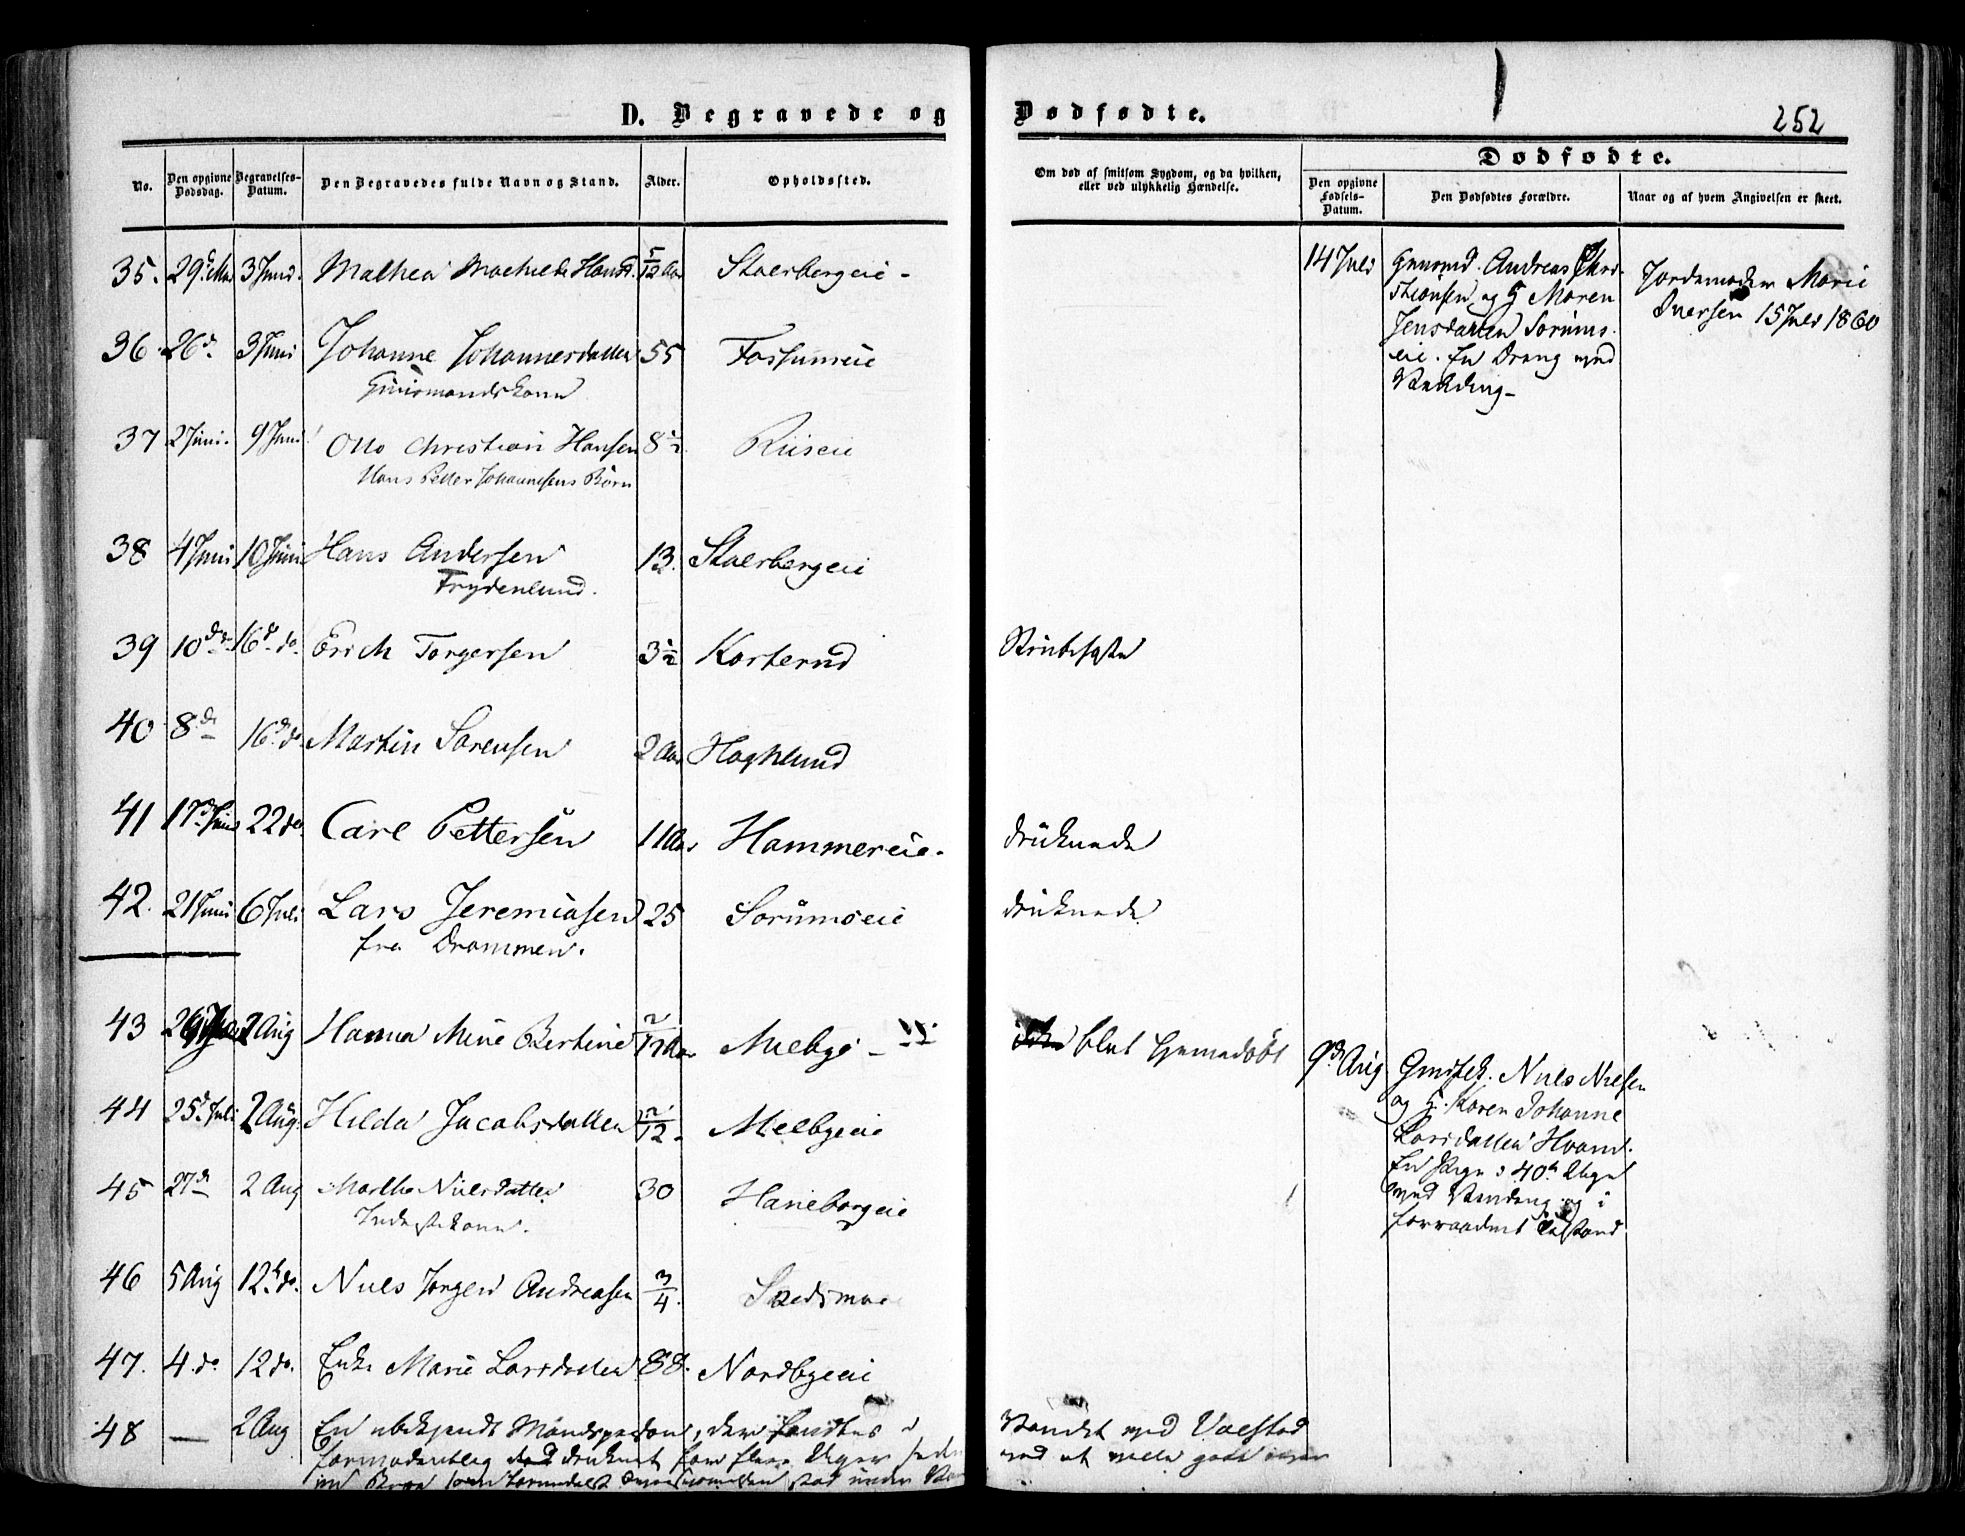 D. Begravede og Dødfødte.
252
No. Den opgivne Dødsdag. Begravelses-Datum. Den Begravedes fulde Navn og Stand. Alder. Opholdssted.
Om død af smitsom Sygdom, og da hvilken, eller ved ulykkelig Hændelse.
Dødfødte.
Den opgivne Fødsels-Datum. Den Dødfødtes Forældre. Naar og af hvem Angivelsen er skeet.
35. 29 3 Juni. Mathea Mathilde 5/12 Aar
36 26 d. 3 Juni Johanne Johannesdatter 55 Fossumeie
37 2 Juni. 9 Juni Otto Christian Hansen 8 1/2 Riiseie
Hans Petter Johannesens Børn
38 4 Juni 10 Juni Hans Andersen 13.
Frydenlund.
39 10 16 d. do. Erich Torgersen 3 1/2 Korterud
Strubesyge
40 8 d. 16 d. do Martin Sørensen 2 Aar
41 17 d. Juni 22 do Carl Pettersen 11 Aar Hammereie.
druknede
42. 21 Juni 6 Juli Lars Jeremiasen 25 Sørumseie
fra Drammen.
druknede
43 2 Aug Hanna Mine Bertine 2/12 Aar Melbye
blot hjemmedøbt
44 25 d. Juli 2 Aug. Hilda Jacobsdatter 2/12. Melbyeie
45 27 d. 2 Aug Marthe Nielsdatter 30 Haneborgeie
46 5 Aug 12 do. Niels Jørgen Andreasen 3/4. Skedsmoe
47. 4. do. 12 do. Enke Marie Larsdatter 88. Nordbyeie
48 — 2 Aug En ubekjendt Mandsperson, der fandtes i
formodentlig druknet for flere Uger siden
Vandet ved Vaestad
14 Juli Andreas
og H Maren
Jensdatter Sørums-
eie. En Dreng ved
Vending-
Jordemoder Marie
Iversen 15 Juli 1860
9 d. Aug Niels Nielsen
og H. Karen Johanne
Larsdatter Hvam.
En Pige 40
ved Vending og i
forraadnet Tilstand